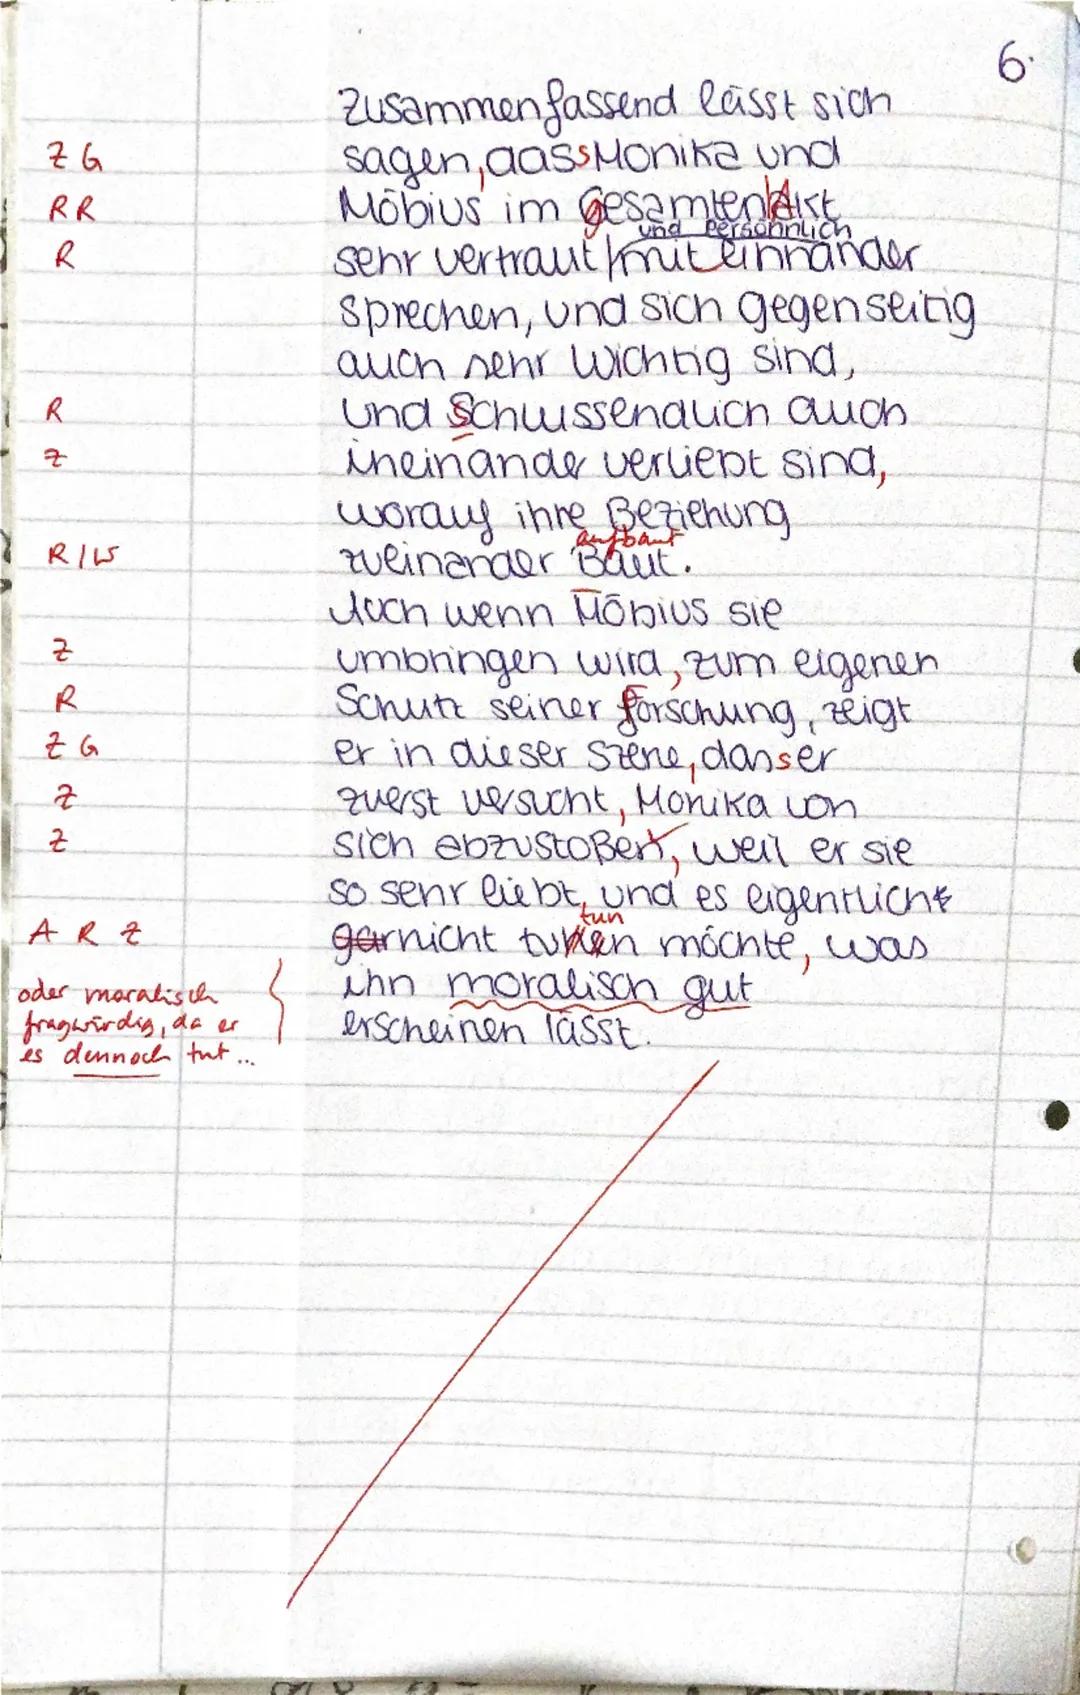 6.
Zusammenfassend lässt sich
Z G sagen, dass Monika und
R R Möbius im gesamten Akt
und persönlich
R sehr vertraut / miteinnander
sprechen, und sich gegenseitig
auch sehr wichtig sind,
R und Schlussendlich auch
Z ineinander verliebt sind,
worauf ihre Beziehung
aufbaut
R/W zueinander Baut.
Auch wenn Möbius sie
Z umbringen wird, zum eigenen
R Schutz seiner Forschung, zeigt
Z G er in dieser Szene, dass er
Z zuerst versucht, Monika von
Z sich abzustoßen, weil er sie
so sehr liebt, und es eigentlich
tun
A R Z garnicht tuhen möchte, was
ihn moralisch gut
erscheinen lässt.
oder moralisch
fragwürdig, da er
es dennoch tut...